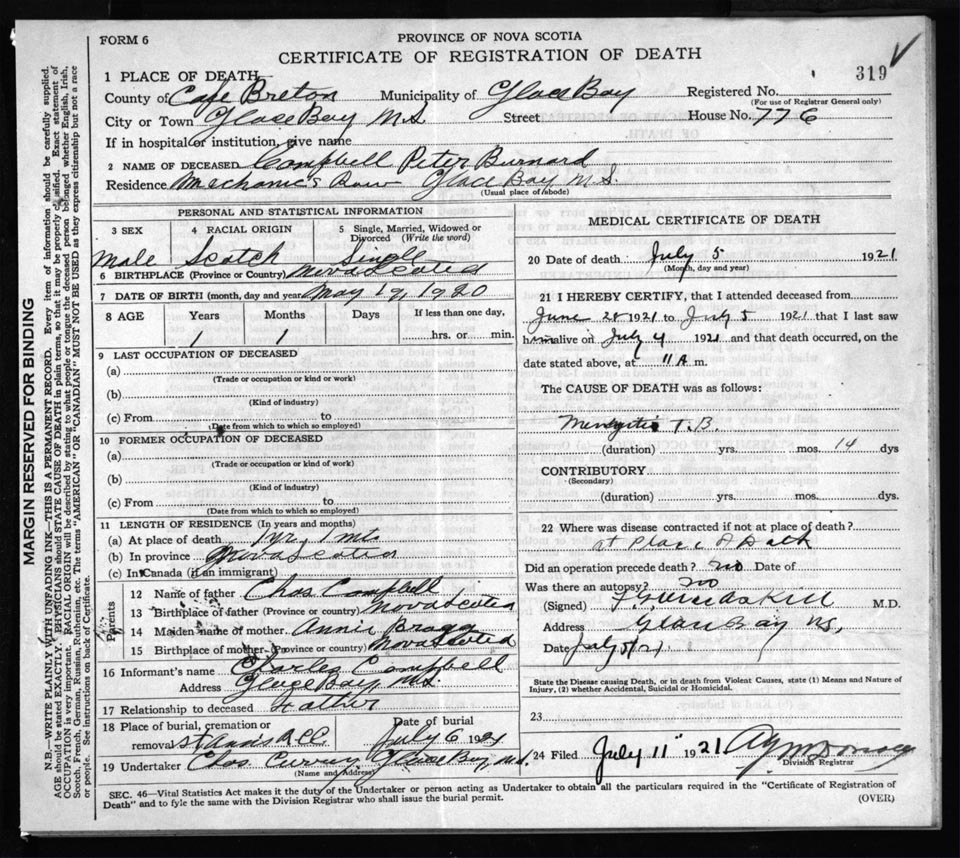 FORM 6
PROVINCE OF NOVA SCOTIA
CERTIFICATE OF REGISTRATION OF DEATH
319
1 PLACE OF DEATH
County of Cape Breton Municipality of Glace Bay Registered No.
(For use of Registrar General only)
City or Town Glace Bay N.S. Street House No. 776
If in hospital or institution, give name
2 NAME OF DECEASED Campbell Peter Burnard
Residence Mechanic's Row Glace Bay N.S.
(Usual place of abode)
PERSONAL AND STATISTICAL INFORMATION
3 SEX 4 RACIAL ORIGIN 5 Single, Married, Widowed or Divorced (Write the word)
Male Scotch Single
6 BIRTHPLACE (Province or Country) Nova Scotia
7 DATE OF BIRTH (month, day and year) May 19, 1920
8 AGE Years Months Days If less than one day,
1 1 hrs. or min.
9 LAST OCCUPATION OF DECEASED
(a)
(Trade or occupation or kind or work)
(b)
(Kind of industry)
(c) From to
(Date from which to which so employed)
10 FORMER OCCUPATION OF DECEASED
(a)
(Trade or occupation or kind of work)
(b)
(Kind of industry)
(c) From to
(Date from which to which so employed)
11 LENGTH OF RESIDENCE (In years and months)
(a) At place of death 1 yr, 1 mt
(b) In province Nova Scotia
(c) In Canada (if an immigrant)
Parents
12 Name of father Chas. Campbell
13 Birthplace of father (Province or country) Nova Scotia
14 Maiden name of mother Annie Bragg
15 Birthplace of mother (Province or country) Nova Scotia
16 Informant's name Charles Campbell
Address Glace Bay, N.S.
17 Relationship to deceased Father
18 Place of burial, cremation or Date of burial
removal St Ann's R.C.C. July 6 1921
19 Undertaker Chas. Curry, Glace Bay, N.S.
(Name and Address)
MEDICAL CERTIFICATE OF DEATH
20 Date of death July 5 1921
(Month, day and year)
21 I HEREBY CERTIFY, that I attended deceased from
June 28 1921 to July 5 1921 that I last saw
him alive on July 4 1921 and that death occurred, on the
date stated above, at 11 A m.
The CAUSE OF DEATH was as follows:
Meningitis T.B.
(duration) yrs. mos. 14 dys
CONTRIBUTORY
(Secondary)
(duration) yrs. mos. dys.
22 Where was disease contracted if not at place of death?
at place of Death
Did an operation precede death? no Date of
Was there an autopsy? no
(Signed) M.D.
Address Glace Bay NS,
Date July 5/21
State the Disease causing Death, or in death from Violent Causes, state (1) Means and Nature of
Injury, (2) whether Accidental, Suicidal or Homicidal.
23
24 Filed July 11 1921
Division Registrar
SEC. 46—Vital Statistics Act makes it the duty of the Undertaker or person acting as Undertaker to obtain all the particulars required in the "Certificate of Registration of
Death" and to fyle the same with the Division Registrar who shall issue the burial permit.
(OVER)
MARGIN RESERVED FOR BINDING
N.B.—WRITE PLAINLY WITH UNFADING INK—THIS IS A PERMANENT RECORD. Every item of information should be carefully supplied.
AGE should be stated EXACTLY. PHYSICIANS should STATE CAUSE OF DEATH in plain terms, so that it may be properly classified. Exact statement of
OCCUPATION is very important. RACIAL ORIGIN will be described by stating to what people or tongue the deceased person belonged whether English, Irish,
Scotch, French, German, Russian, Ruthenian, etc. The terms "AMERICAN" OR "CANADIAN" MUST NOT BE USED as they express citizenship but not a race
or people. See instructions on back of Certificate.